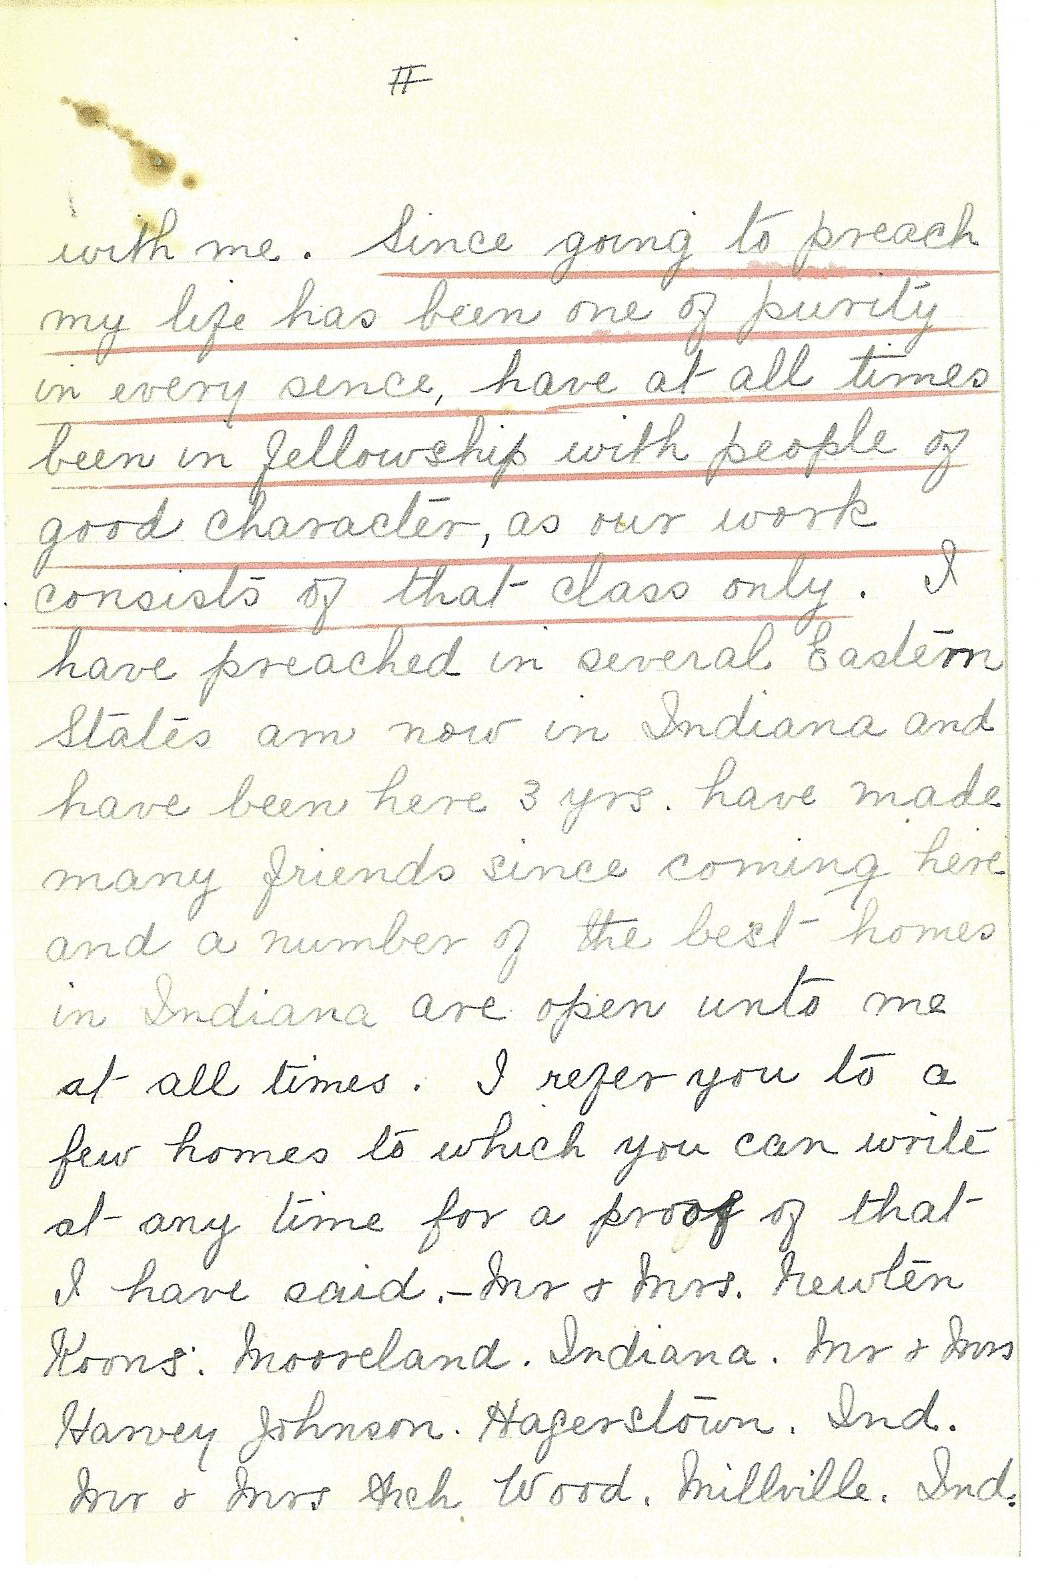 II
with me. Since going to preach
my life has been one of purity
in every sence, have at all times
been in fellowship with people of
good character, as our work
consists of that class only. I
have preached in several Eastern
States am now in Indiana and
have been here 3 yrs. have made
many friends since coming here
and a number of the best homes
in Indiana are open unto me
at all times. I refer you to a
few homes to which you can write
at any time for a proof of that
I have said.- Mr & Mrs. Newten
Koons. Mooreland. Indiana. Mr & Mrs
Harvey Johnson. Hagerstown. Ind.
Mr & Mrs Wood. Millville. Ind.